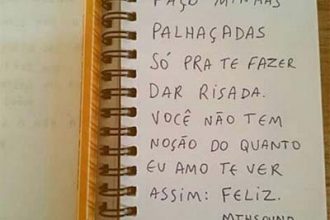 FAÇO MINHAS
PALHAÇADAS
SÓ PRA TE FAZER
DAR RISADA.
VOCÊ NÃO TEM
NOÇÃO DO QUANTO
EU AMO TE VER
ASSIM: FELIZ.